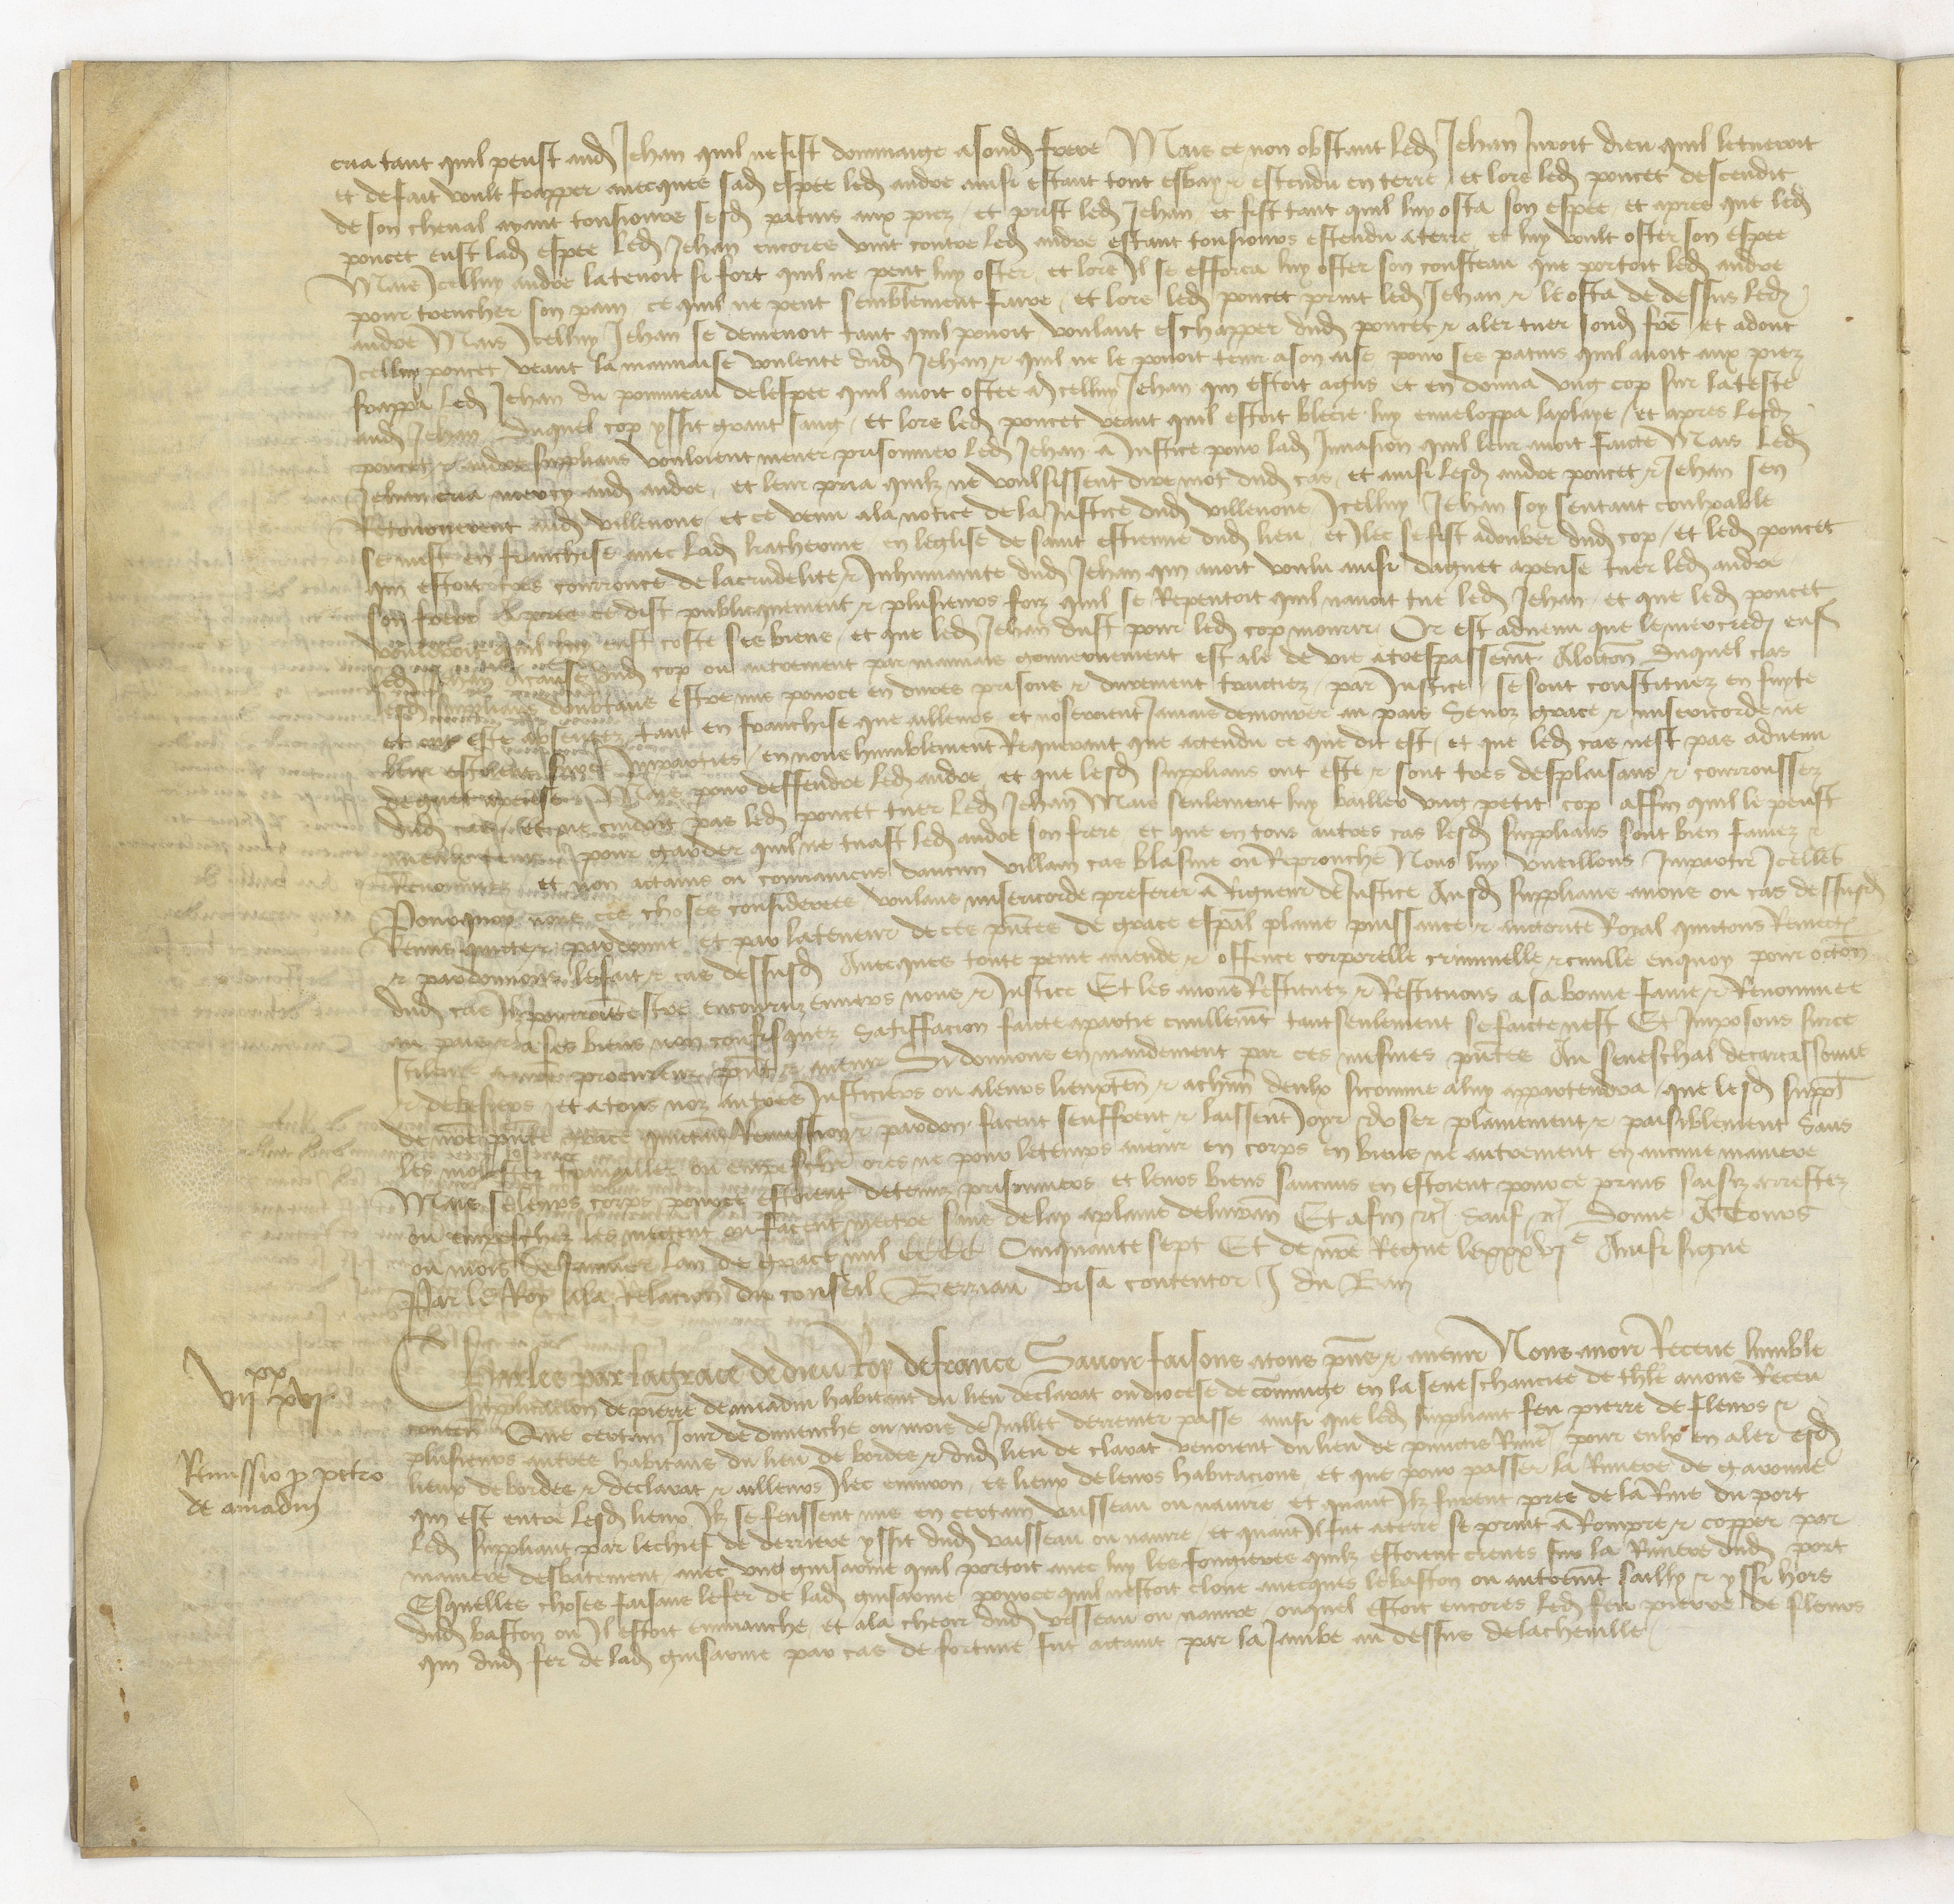 cria tant quil peust aud Jehan quil ne fist dommaige a sond frere Mais ce non obstant led Jehan juroit dieu quil le tueroit
et de fait voult frapper avecques sad espee led andre ainsi estant tout esbay & estendu en terre et lors led poncet descendit
de son cheval ayant tousiours sesd patins aux piez et prist led Jehan et fist tant quil luy osta son espee et apres que led
poncet eust lad espee led Jehan encores vint contre led andre estant tousiours estendu a terre et luy voult oster son espee
Mais Icelluy andre la tenoit si fort quil ne peut luy oster et lors Il se efforca luy oster son cousteau que portoit led andre
pour trencher son pain ce quil ne peut semblement faire et lors led poncet print led Jehan & le osta de dessus led
andre Mais Icelluy Jehan se demenoit tant quil povoit voulant eschapper dud poncet & aler tuer sond fre et adont
Icelluy poncet veant la mauvaise voulente dud Jehan & quil ne le povoit tenir a son aise pour ses patins quil avoit aux piez
frappa led Jehan du pommeau de lespee quil avoit ostee a Icelluy Jehan qui estoit agus et en donna ung cop sur la teste
aud Jehan Duquel cop yssit grant sang et lors led poncet veant quil estoit blecie luy enveloppa la playe et apres lesd
poncet & andre supplians vouloient mener prisonnier led Jehan a Justice pour lad Invasion quil leur avoit faicte Mais led
Jehan cria mercy aud andre et leur pria quilz ne voulsissent dire mot dud cas et ainsi lesd andre poncet & Jehan sen
Retournerent aud villenove et ce venu a la notice de la Justice dud villenove Icelluy Jehan soy sentant coulpable
se mist en franchise avec lad katherine en leglise de saint estienne dud lieu et Ilec se fist adouber dud cop et led poncet
qui estoit tres courrouce de la crudelite & Inhumanite dud Jehan qui avoit voulu ainsi daguet apense tuer led andre
son frere apres ce dist publicquement & plusieurs foiz quil se Repentoit quil navoit tue led Jehan et que led poncet
vouldroit quil luy eust coste ses biens et que led Jehan dust pour led cop mourir Or est advenu que le mercredi ens
led Jehan a cause dud cop ou autrement par mauvais gouvernement est ale de vie a trespassemt A loccon Duquel cas
lesd supplians doubtans estre mis pource en dures prisons & durement traictiez par Justice se sont constituez en fuyte
et ont este absentez tant en franchise que ailleurs et noseroient Jamais demourer au pais Se noz grace & misericorde ne
leur estoient sur ce Imparties en nous humblement Requerant que actendu ce que dit est et que led cas nest pas advenu
de guet apense Mais pour deffendre led andre et que lesd supplians ont este & sont tres desplaisans & courroussez
dud cas et ne cuidoit pas led poncet tuer led Jehan Mais seulement luy bailler ung petit cop affin quil le peust
mieulx tenir pour garder quil ne tuast led andre son frere et que en tous autres cas lesd supplians sont bien famez &
Renommez et non actains ou convaincus daucun villain cas blasme ou Reprouche Nous luy vueillons Impartir Icelles
Pourquoy nous ces choses considerees voulans misericorde preferer a Rigueur de Justice Ausd supplians avons ou cas dessusd
Remis quicte & pardonne et par la teneur de ces pntes de grace espal plaine puissance & auctorite Royal quictons Remect
& pardonnons le fait & cas dessusd Avecques toute peine amende & offence corporelle criminelle & civille en quoy pour occon
dud cas Ilz pourroient estre encouruz envers nous & Justice Et les avons Restituez & Restituons a sa bonne fame & Renommee
au pais & a ses biens non confisquez Satiffacion faicte a partie civillemt tant seulement se faicte nest Et Imposons sur ce
silence a nre procureur pnt & avenir Si donnons en mandement par ces mesmes pntes Au seneschal de carcassonne
& de besiers et a tous noz autres Justiciers ou a leurs lieuxten & a chun deulx sicomme a luy appartendra que lesd suppl
de nre pnte grace quictance Remission & pardon facent seuffrent & laissent Joyr & user plainement & paisiblement Sans
les molester travailler ou empescher ores ne pour le temps avenir en corps en biens ne autrement en aucune maniere
Mais se leurs corps pource estoient detenuz prisonniers et leurs biens saucuns en estoient pource prins saisiz arrestez
ou empeschez les mectent ou facent mectre sans delay a plaine delivran Et afin &c Sauf &c Donne A Tours
ou mois de Janvier lan de grace mil cccc Cinquante sept Et de nre Regne le xxxvj e Ainsi signe
Par le Roy a la Relacion du conseil Berziau visa contentor J du Ban
Charles par la grace de dieu Roy de france Savoir faisons a tous pns & avenir Nous avoir Receue humble
supplicacion de pierre de amadin habitant du lieu declavat ou diocese de comminge en la seneschaucee de thle avons Receu
conten Que certain Jour de dimenche ou mois de Juillet derrenier passe ainsi que led suppliant feu pierre de flenos &
plusieurs autres habitans du lieu de bordes & dud lieu de clavat venoient du lieu de punctis Rive pour eulx en aler esd
lieux de bordes & declavat & ailleurs Ilec environ es lieux de leurs habitacions et que pour passer la Riviere de garonne
qui est entre lesd lieux Ilz se feussent mis en certain vaisseau ou navire et quant Ilz furent pres de la Rive du port
led suppliant par le chief de derriere yssit dud vaisseau ou navire et quant Il fut a terre se print a Rompre & copper par
maniere desbatement avec une guisarme quil portoit avec luy les fougieres quilz estoient creues sur la Riviere dud port
Esquelles choses faisans le fer de lad guisarme pource quil nestoit cloue avecques le baston ou autremt sailly & yssi hors
dud baston ou Il estoit emmanche et ala cheoir dud vesseau ou navire ouquel estoit encores led feu pierre de flenos
qui dud fer de lad guisarme par cas de fortune fut actaint par la Jambe au dessus de la cheville
VIII xx XVI
Remissio p petro
de amadin